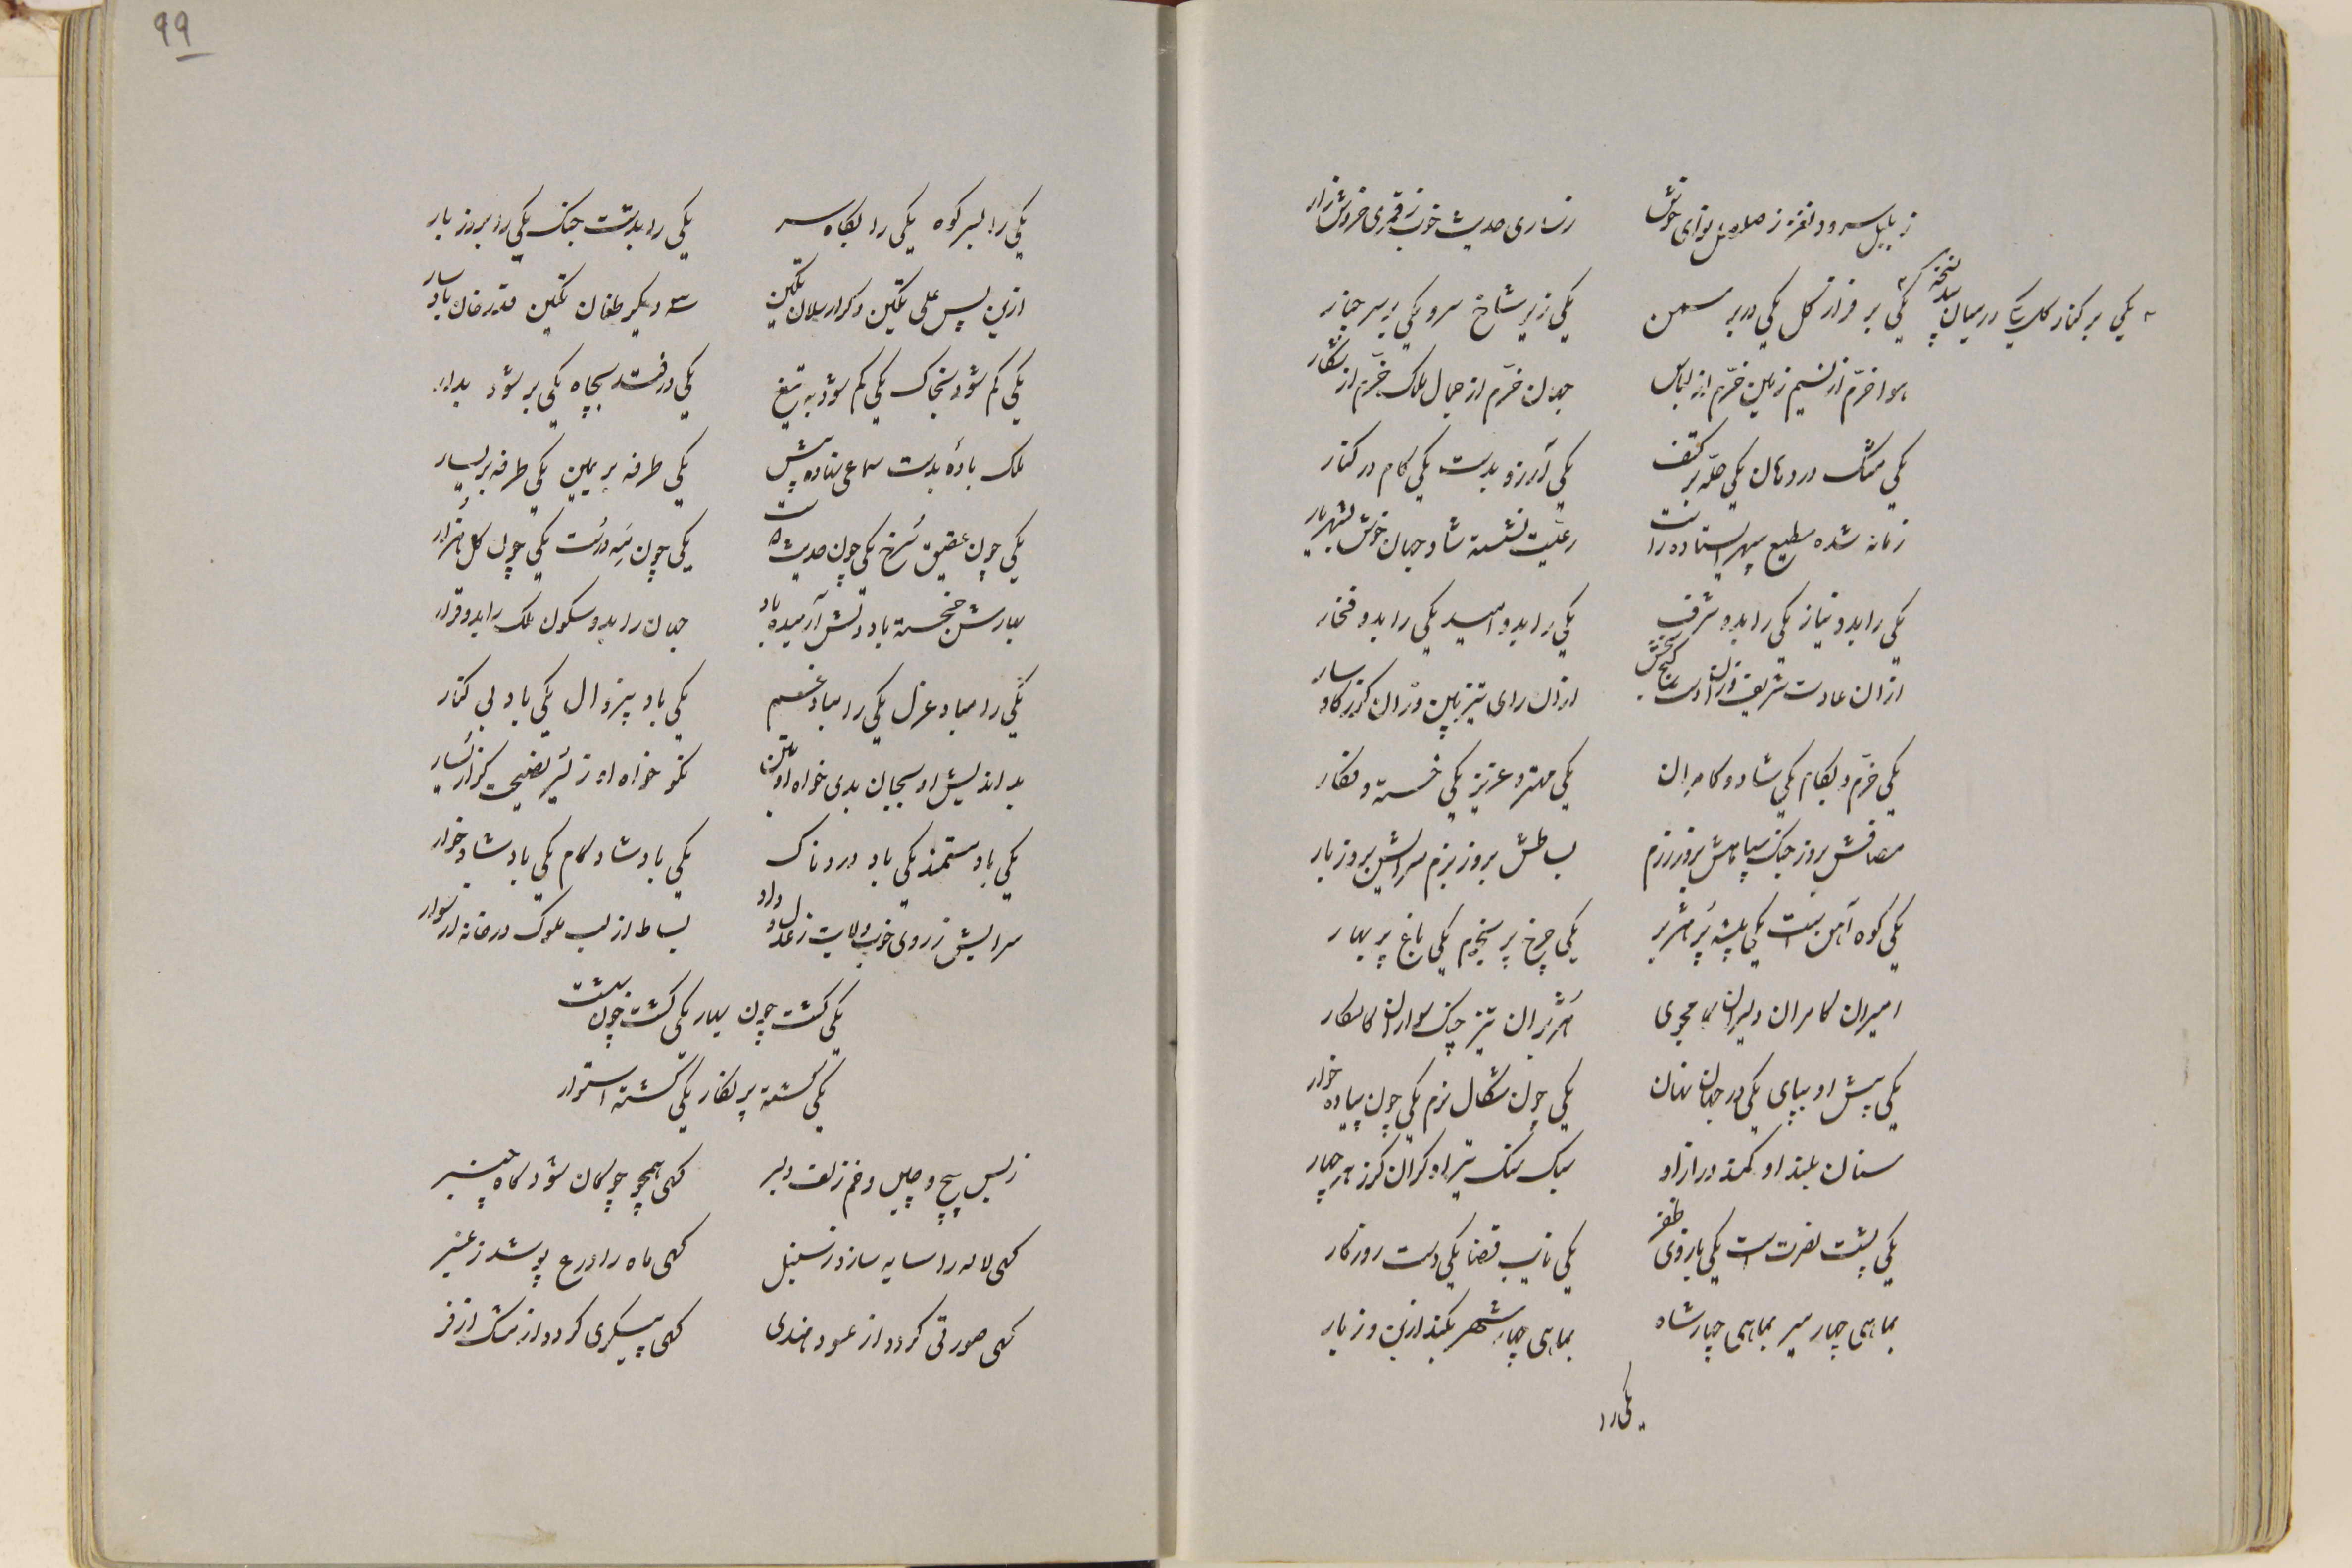 ز بلبل سرود نغز ز صلصل نوای خوش
ز ساری حدیث خوب ز قمری خروش زار
یکی بر کنار گل یکی در میان بید
نسخه
یکی بر فراز گل یکی در بر سمن
یکی زیر شاخ سرو یکی بر سر چنار
هوا خرّم از نسیم زمین خرّم از لباس
جهان خرّم از جمال ملک خرّم از شکار
یکی مشک در دهان یکی حلّه بر کتف
یکی آرزو بدست یکی کام در کنار
زمانه شده مطیع سپهر ایستاده راست
رعیّت نشسته شاد جهان خوش بشهریار
یکی را بدو نیاز یکی را بدو شرف
یکی را بدو امید یکی را بدو فخار
از ان عادت شریف وزان دست گنج بخش
از ان رای تیزبین وزان گرز گاوسار
یکی خرّم و بکام یکی شاد و کامران
یکی مهتر و عزیز یکی خسته و فکار
مصافش بروز جنگ سپاهش بروز رزم
بساطش بروز بزم سرایش بروز بار
یکی کوه آهن ست یکی بیشه پر هژبر
یکی چرخ پر نجوم یکی باغ پر بهار
امیران کامران دلیران نامجوی
هژبران تیز چنگ سواران کامکار
یکی پیش او بپای یکی در جهان نهان
یکی چون شکال نرم یکی چون پیاده خوار
سنان بلند او کمند دراز او
سبک سنگ تیر او گران گرز هر چهار
یکی پشت نصرت است یکی بازوی ظفر
یکی نایب قضا یکی دست روزگار
بماهی چهار میر بماهی چهار شاه
بماهی چهار شهر بکند ازین دیار
یکی را
۹۹
یکی را بسر کوه یکی را بگاه سر
یکی را بدشت جنگ یکی را بروز بار
ازین پس علی تکین دگر ارسلان تکین
سه دیگر طغان تکین قدرخان بادسار
یکی گم شود بخاک یکی گم شود به تیغ
یکی در فتد بچاه یکی بر شود بدار
ملک باده بدست سماعی نهاده پیش
یکی طرفه بر یمین یکی طرفه بر یسار
یکی چون عقیق سرخ یکی چون حدیث دوست
یکی چون مه درست یکی چون گل هزار
بهارش خجسته باد دلش آرمیده باد
جهان را بدو سکون ملک را بدو قرار
یکی را مباد عزل یکی را مباد غم
یکی باد بیزوال یکی باد بی کنار
بد اندیش او بجان بدی خواه او بتن
نکو خواه او ز تیر نصیحت گزار یسار
یکی باد مستمند یکی باد دردناک
یکی باد شادکام یکی باد شاد خوار
سرایش ز روی خوب ولایت ز عدل و داد
بساط از لب ملوک در خانه از سوار
یکی گشت چون بهار یکی گشت چون بهشت
یکی گشته پر نگار یکی گشته استوار
ز بس پیچ و چین و خم زلف دلبر
گهی همچو چوگان شود گاه چنبر
گهی لاله را سایه سازد ز سنبل
گهی ماه را درع پوشد ز عنبر
گهی صورتی گردد از عود هندی
گهی پیکری گردد از مشک اذفر